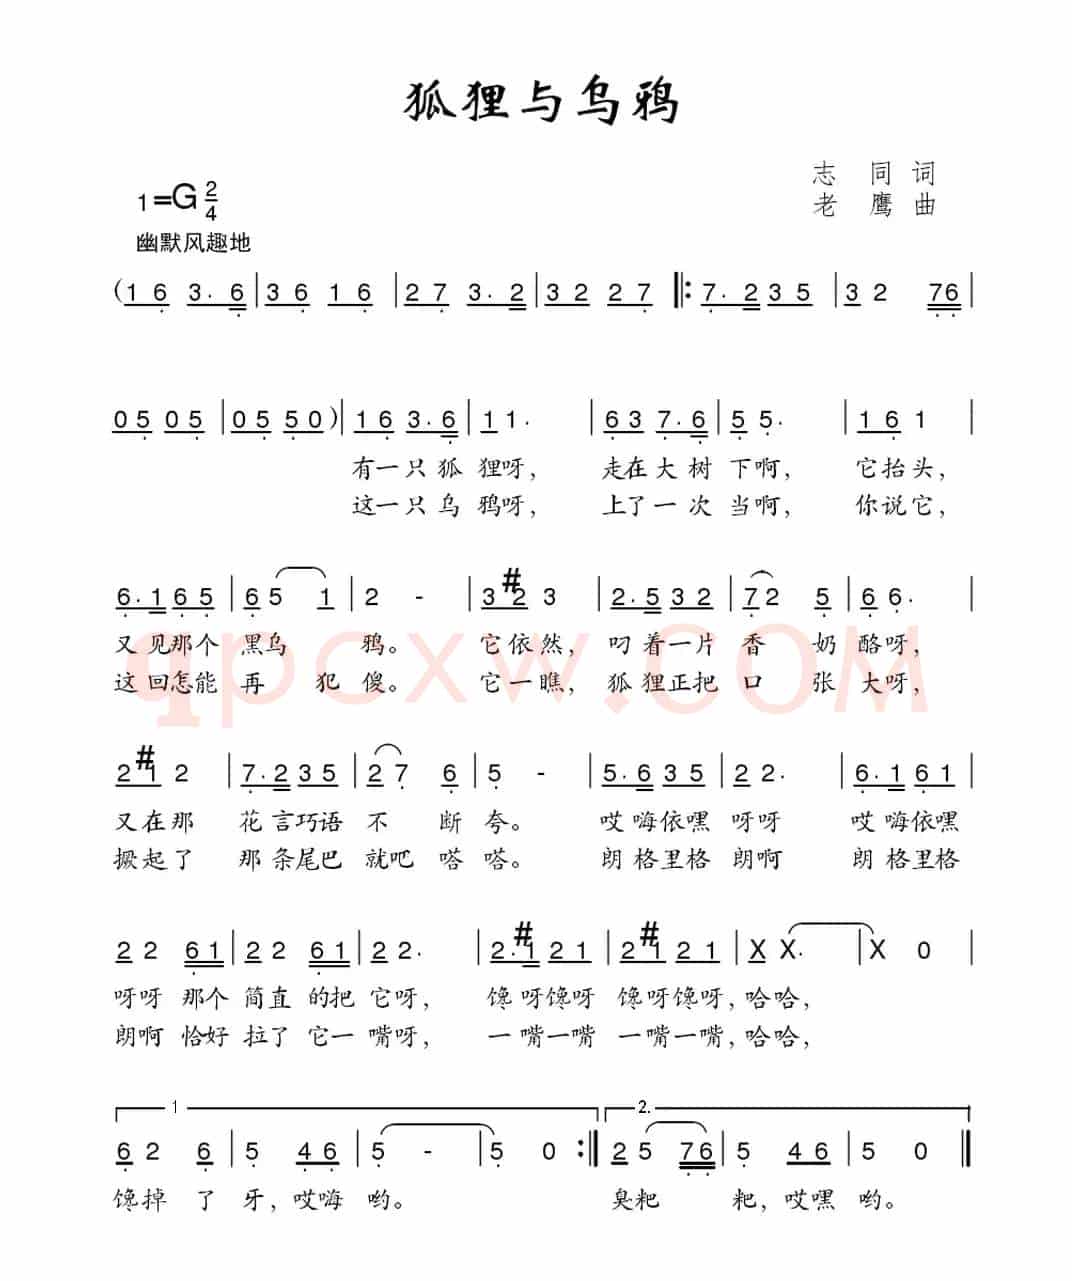 狐狸与乌鸦
志 同 词
1=G 2/4
老 鹰 曲
幽默风趣地
(1 6 3. 6 | 3 6 1 6 | 2 7 3. 2 | 3 2 2 7 ‖: 7. 2 3 5 | 3 2 7 6 |
0 5 0 5 | 0 5 5 0 ) | 1 6 3. 6 | 1 1. | 6 3 7. 6 | 5 5. | 1 6 1 |
有一只狐 狸呀， 走在大树 下啊， 它抬头，
这一只乌 鸦呀， 上了一次 当啊， 你说它，
6. 1 6 5 | 6 5 1 | 2 - | 3 #2 3 | 2. 5 3 2 | 7 2 5 | 6 6. |
又见那个 黑乌 鸦。 它依然， 叼着一片 香 奶 酪呀，
这回怎能 再 犯 傻。 它一瞧， 狐狸正把 口 张 大呀，
qpcxw.COM
2 #1 2 | 7. 2 3 5 | 2 7 6 | 5 - | 5. 6 3 5 | 2 2. | 6. 1 6 1 |
又在那 花言巧语 不 断 夸。 哎嗨依嘿 呀呀 哎嗨依嘿
撅起了 那条尾巴 就吧 嗒 嗒。 朗格里格 朗啊 朗格里格
2 2 6 1 | 2 2 6 1 | 2 2. | 2. #1 2 1 | 2 #1 2 1 | X X. | X 0 |
呀呀 那个 简直 的把 它呀， 馋呀馋呀 馋呀馋呀，哈哈，
朗啊 恰好 拉了 它一 嘴呀， 一嘴一嘴 一嘴一嘴，哈哈，
1 2.
6 2 6 | 5 4 6 | 5 - | 5 0 :‖ 2 5 7 6 | 5 4 6 | 5 0 ‖
馋掉 了 牙，哎嗨 哟。 臭粑 粑，哎嘿 哟。